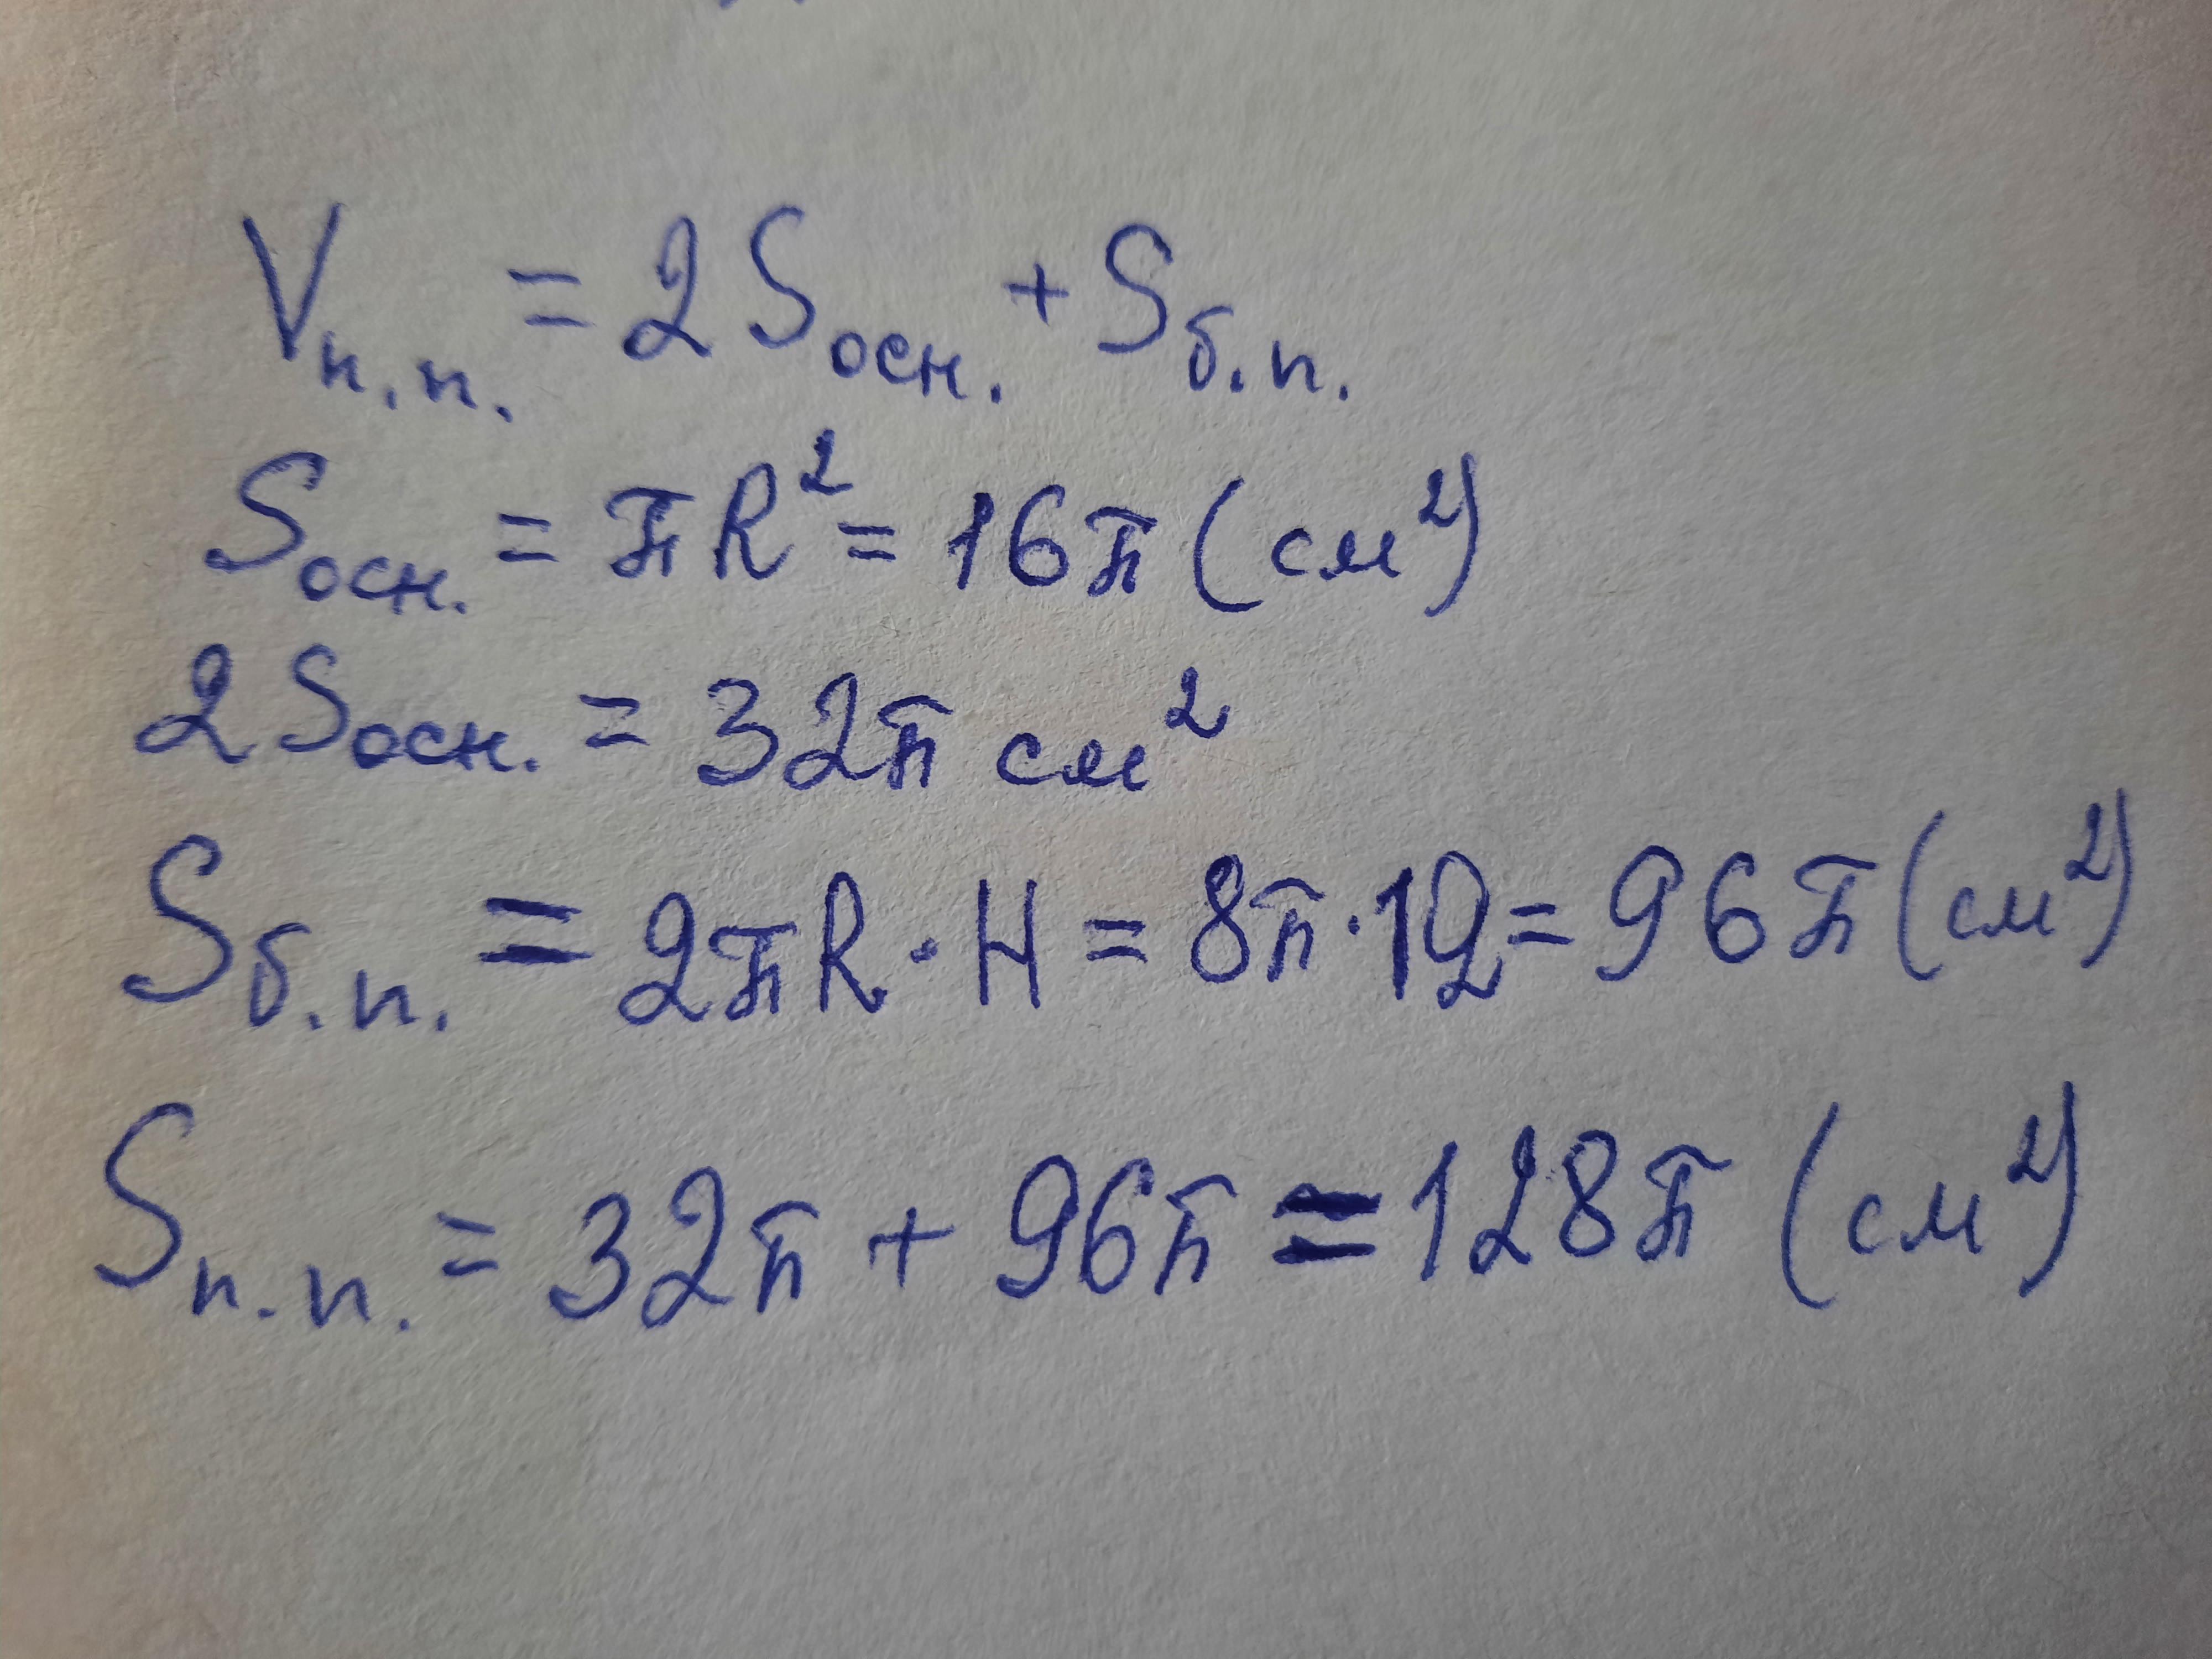 Vп.п. = 2Sосн. + Sб.п.
Sосн. = πR² = 16π (см²)
2Sосн. = 32π см²
Sб.п. = 2πR · H = 8π · 12 = 96π (см²)
Sп.п. = 32π + 96π = 128π (см²)